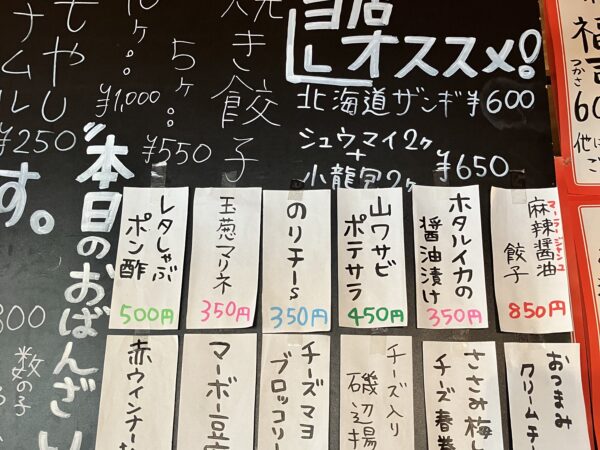 当店
オススメ!
北海道ザンギ¥600
シュウマイ2ケ
+
小龍包2ケ
¥650
焼き餃子
5ケ。。
¥550
10ケ。。
¥1,000
もやし
ナムル
¥250
"本日のおばんざい
す。
麻辣醤油
マーラージャンユ
餃子
850円
ホタルイカの
醤油漬け
350円
山ワサビ
ポテサラ
450円
のりチーs
350円
玉葱マリネ
350円
レタしゃぶ
ポン酢
500円
おつまみ
クリームチー
ささみ梅し
チーズ春巻
チーズ入り
磯辺揚
チーズマヨ
ブロッコリー
マーボー豆腐
赤ウインナー
数の子
福
つかさ
他に